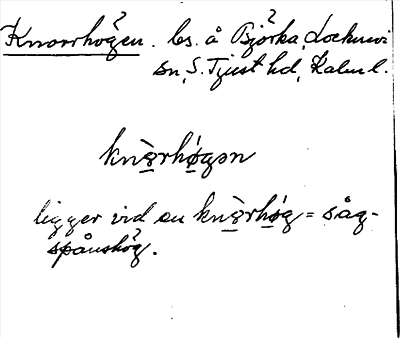 Knorrhögen. bs. å Björka, Locknevi
sn, S. Tjust hd, Kalm l.
knò̱rhö́gən
ligger vid en knò̱rhö́g = såg-
spånshög.